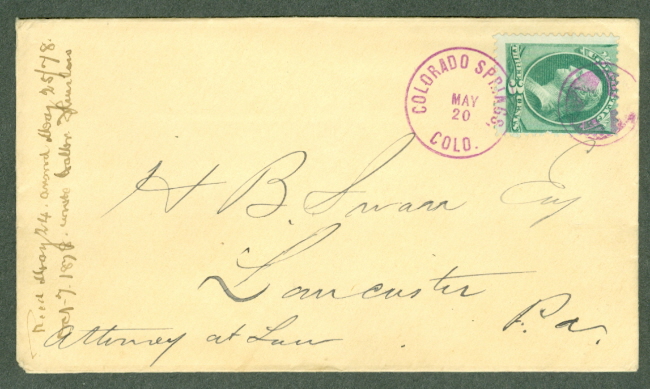 COLORADO SPRINGS,
MAY
20
COLO.
H B. Swarr Esq
Lancaster
Pa.
Attorney at Law
Recd May 24. answd May 25/78.
Oct. 7. 1878. wrote